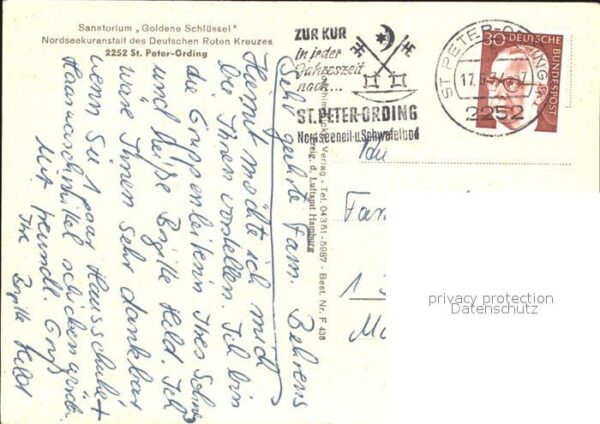 Sanatorium „Goldene Schlüssel"
Nordseekuranstalt des Deutschen Roten Kreuzes
2252 St. Peter-Ording
ZUR KUR
in jeder
Jahreszeit
nach...
ST. PETER-ORDING
Nordseeheil-u.Schwefelbad
ST. PETER-ORDING
17.5.74-17
2252
30 DEUTSCHE BUNDESPOST
Sehr geehrte Fam. Behrens
Hiermit möchte ich mich
bei Ihnen vorstellen. Ich bin
die Gruppenleiterin Ihres
und heiße Brigitte Held. Ich
wäre Ihnen sehr dankbar
wenn Sie 1 paar Hausschuhe +
schicken würden.
Mit freundl. Gruß
Ihre Brigitte Held
Verlag - Tel. 04351-5987 - Best. Nr. F 438
Freig. d. Luftamt Hamburg
An
Fam
1
privacy protection
Datenschutz